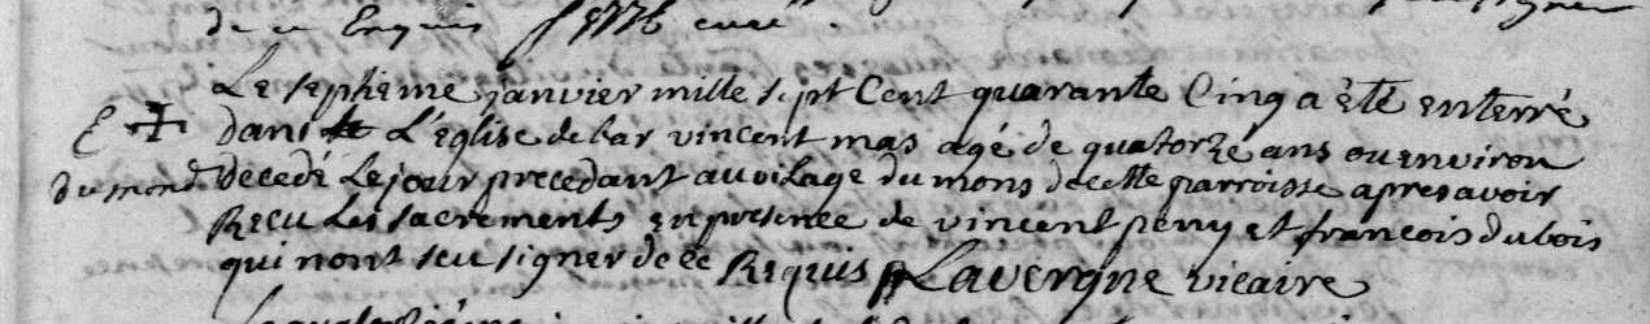 de ce Enquis curé .
Le septieme janvier mille sept Cent quarante Cinq a èté enterré
E dans L'église de bar vincent mas agé de quatorze ans ou environ
du mond decedé Le jour precedant au vilage du mons de cette parroisse apres avoir
Recu Les sacrements en presence de vincent peny et francois dubois
qui nont seu signer de ce Requis Lavergne vicaire